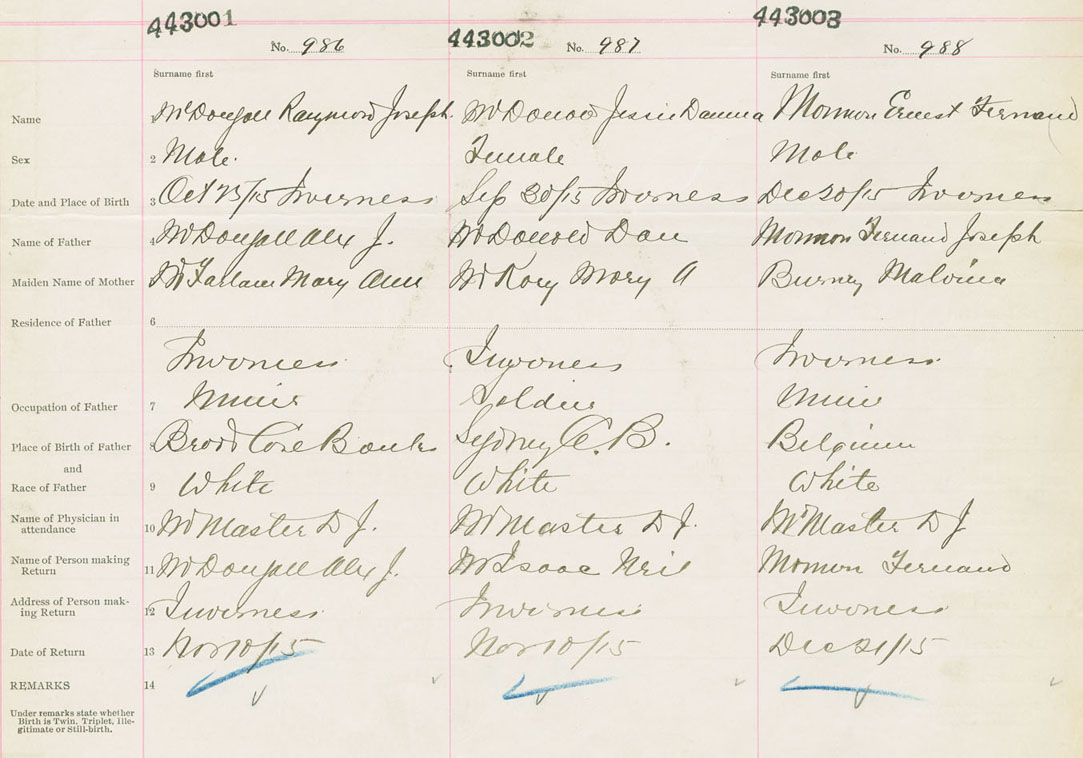 443001 443002 443003
No. 986 No. 987 No. 988
Surname first Surname first Surname first
Name 1 McDougall Raymond Joseph. McDonald Jessie Mormon Ernest Fernand
Sex 2 Male. Female Male
Date and Place of Birth 3 Oct 25/15 Inverness Sep 30/15 Inverness Dec 20/15 Inverness
Name of Father 4 McDougall Alex J. McDonald Dan Mormon Fernand Joseph
Maiden Name of Mother McFarlane Mary Ann McRory Mary A Burney Malvina
Residence of Father 6
Inverness Inverness Inverness
Occupation of Father 7 Miner Soldier Miner
Place of Birth of Father 8 Broad Cove Banks Sydney C.B. Belgium
and
Race of Father 9 White White White
Name of Physician in
attendance 10 McMaster D J. McMaster D J. McMaster D J
Name of Person making
Return 11 McDougall Alex J. McIsaac Neil Mormon Fernand
Address of Person mak-
ing Return 12 Inverness Inverness Inverness
Date of Return 13 Nov 10/15 Nov 10/15 Dec 21/15
REMARKS 14
Under remarks state whether
Birth is Twin, Triplet, Ille-
gitimate or Still-birth.